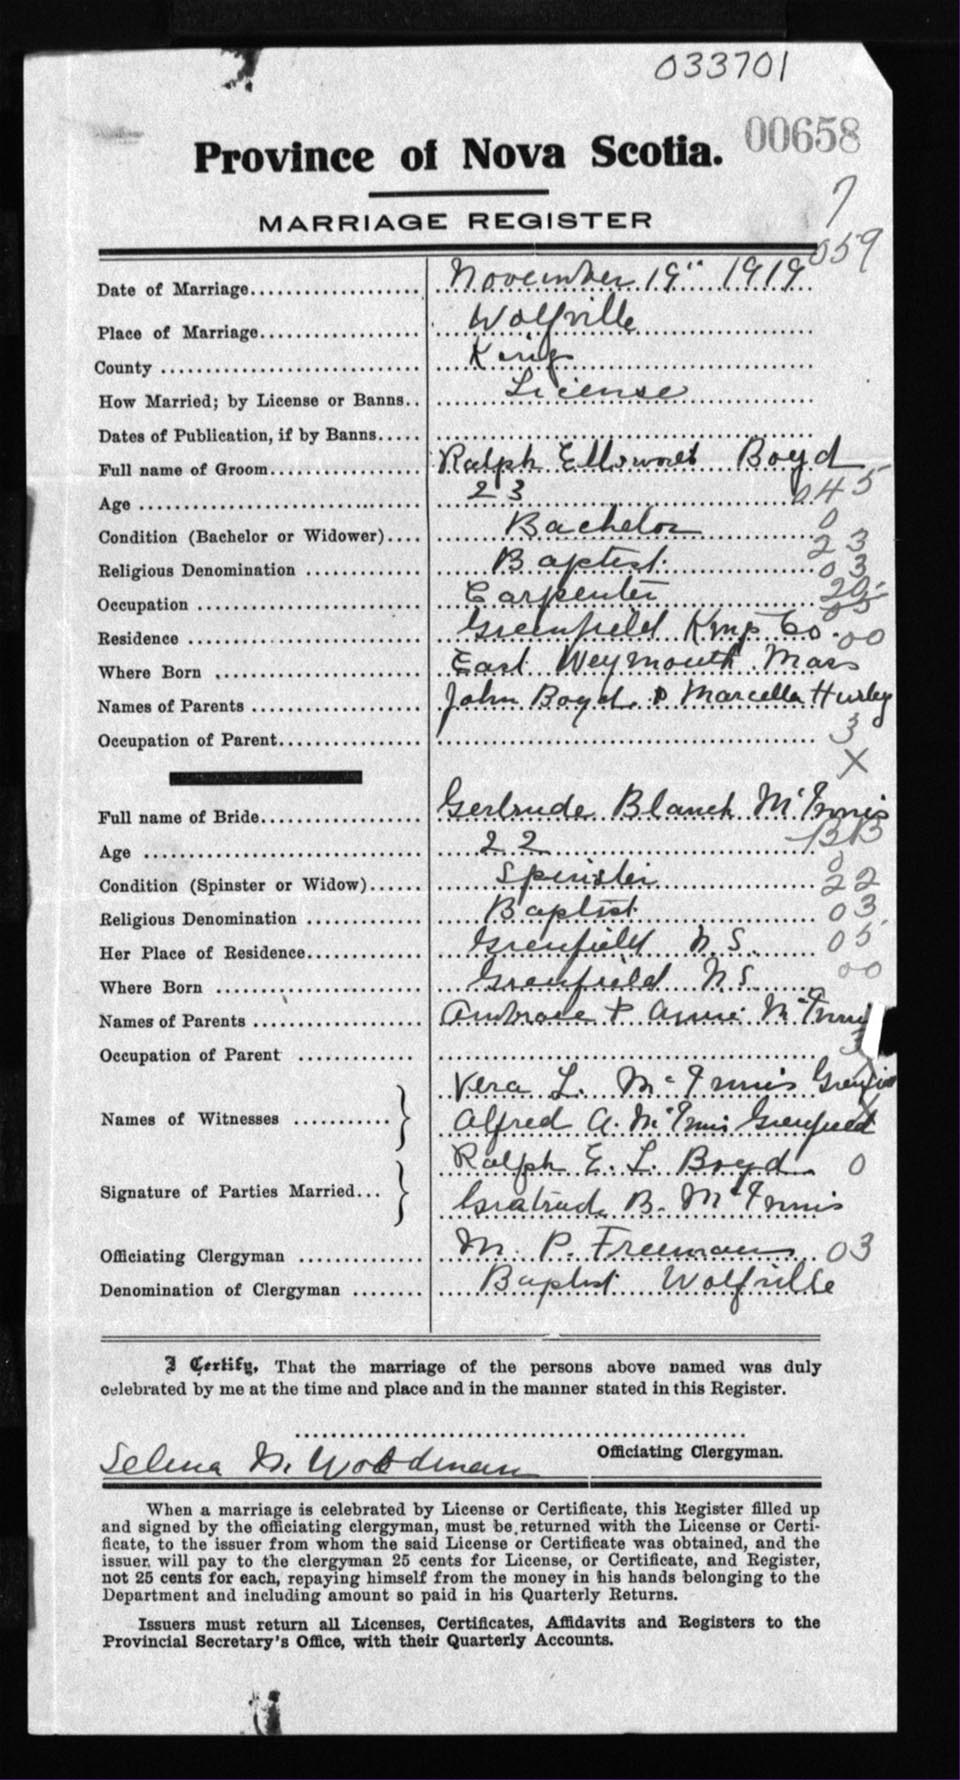 033701
00658
Province of Nova Scotia.
7
MARRIAGE REGISTER
059
Date of Marriage.................... November 19" 1919
Place of Marriage................... Wolfville
County ............................. Kings
How Married; by License or Banns.. License
Dates of Publication, if by Banns.....
Full name of Groom.................. Ralph Ellsworth Boyd
045
Age ................................ 23
0
Condition (Bachelor or Widower).... Bachelor
23
Religious Denomination ............. Baptist
03
Occupation ......................... Carpenter
20
05
Residence .......................... Greenfield Kings Co. 00
Where Born ......................... East Weymouth Mass
Names of Parents ................... John Boyd & Marcella Hurley
3
Occupation of Parent................
X
Full name of Bride.................. Gertrude Blanch McInnis
BB
Age ................................ 22
0
Condition (Spinster or Widow)...... Spinster 22
Religious Denomination ............. Baptist 03
Her Place of Residence............. Greenfield N.S. 05
00
Where Born ......................... Greenfield N.S.
Names of Parents ................... Ambrose & Annie McInnis
3
Occupation of Parent ...............
Vera L. McInnis
X
Names of Witnesses ........... } Alfred A. McInnis Greenfield
Ralph E. L. Boyd 0
Signature of Parties Married... } Gertrude B. McInnis
Officiating Clergyman .............. M. P. Freeman 03
Denomination of Clergyman ........ Baptist Wolfville
I Certify, That the marriage of the persons above named was duly
celebrated by me at the time and place and in the manner stated in this Register.
Officiating Clergyman.
Selena M. Woodman
When a marriage is celebrated by License or Certificate, this Register filled up
and signed by the officiating clergyman, must be returned with the License or Certi-
ficate, to the issuer from whom the said License or Certificate was obtained, and the
issuer will pay to the clergyman 25 cents for License, or Certificate, and Register,
not 25 cents for each, repaying himself from the money in his hands belonging to the
Department and including amount so paid in his Quarterly Returns.
Issuers must return all Licenses, Certificates, Affidavits and Registers to the
Provincial Secretary's Office, with their Quarterly Accounts.